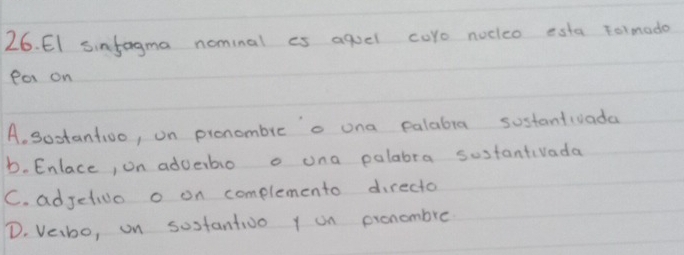 26. El sinfagma nominal es aquel cuyo nucleo esta formado
Por un
A. Sustantivo, un pronombre o una palabra sustantivada
b. Enlace, un adverbio o una palabra sustantivada
C. adjetivo o un complemento directo
D. Verbo, un sustantivo y un pronombre